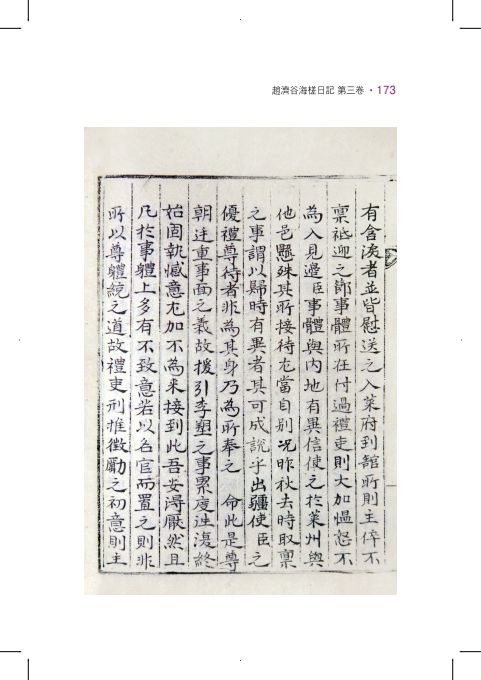 趙濟谷海槎日記 第三卷 · 173
有含淚者並皆慰送之入萊府到舘所則主倅不
禀祗迎之節事體所在付過禮吏則大加慍怒不
為入見邊臣事體與內地有異信使之於萊州與
他邑懸殊其所接待尤當自別况昨秋去時取禀
之事謂以歸時有異者其可成說乎出疆使臣之
優禮尊待者非為其身乃為所奉之 命此是尊
朝廷重事面之義故援引李塑之事累度迬復終
始固執憾意尤加不為来接到此吾安淂厭然且
凡於事體上多有不致意若以名官而置之則非
所以尊體統之道故禮吏刑推徵勵之初意則主